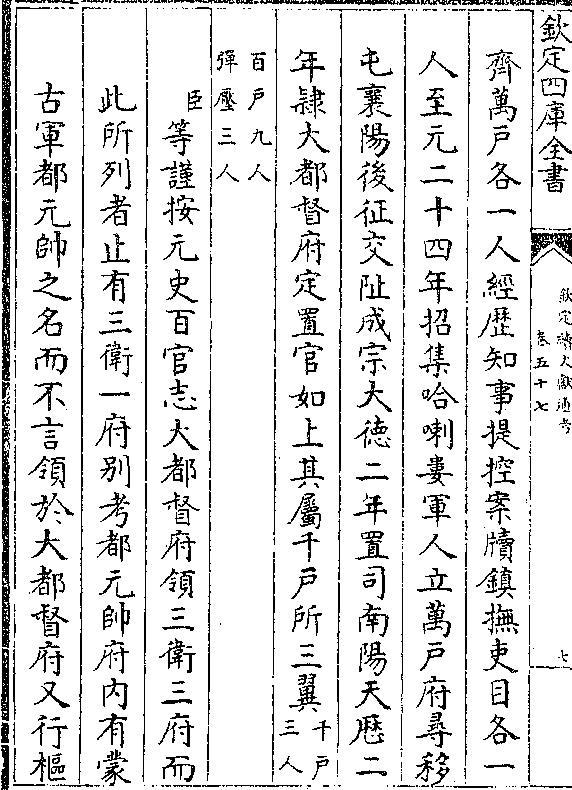 欽定四庫全書
欽定續文獻通考
卷五十七
七
齊萬戶各一人經歴知事提控案牘鎮撫吏目各一
人至元二十四年招集哈喇婁軍人立萬戶府尋移
屯襄陽後征交阯成宗大徳二年置司南陽天厯二
年隷大都督府定置官如上其屬千戶所三翼千戶三人
百戶九人彈壓三人
臣等謹按元史百官志大都督府領三衛三府而
此所列者止有三衛一府别考都元帥府内有䝉
古軍都元帥之名而不言領於大都督府又行樞